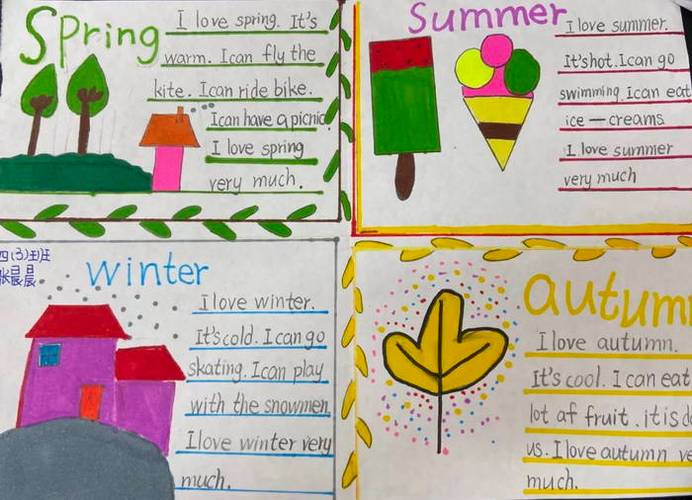 Spring
I love spring. It's
warm. I can fly the
kite. I can ride bike.
I can have a picnic
I love spring
very much.
Summer
I love summer.
It's hot. I can go
swimming. I can eat
ice—creams
I love summer
very much
四(3)班
张晨晨
winter
I love winter.
It's cold. I can go
skating. I can play
with the snowmen
I love winter very
much.
autum
I love autumn.
It's cool. I can eat
lot af fruit. it is
us. I love autumn
much.